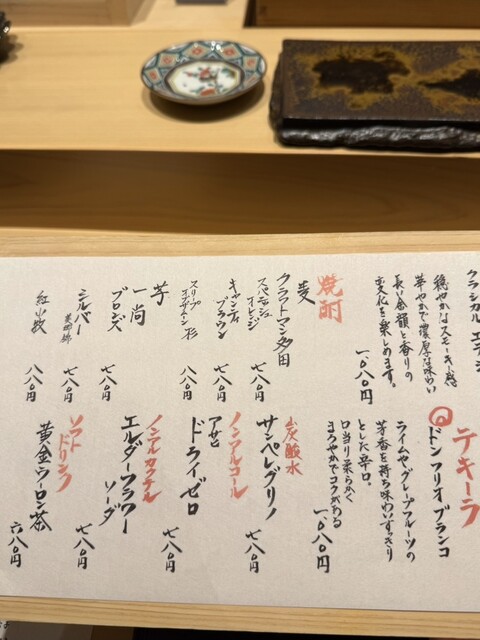 クラシカル
穏やかなスモーキー感
華やかで濃厚な味わい
長い余韻と香りの
変化を楽しめます。
一、〇八〇円
焼酎
麦
クラフトマン多田
スパニッシュ
オレンジ
七八〇円
キャンティ
ブラウン
七八〇円
スリープ
オブザムーン 杉
八八〇円
芋
一尚
ブロンズ
七八〇円
シルバー
七八〇円
紅小牧
八八〇円
テキーラ
ドン フリオ ブランコ
ライムや、グレープフルーツの
芳香を持ち味わいすっきり
とした辛口。
口当り柔らかく
まろやかでコクがある
一、〇八〇円
炭酸水
サンペレグリノ
七八〇円
ノンアルコール
アサヒ
ドライゼロ
七八〇円
ノンアルカクテル
エルダーフラワー
ソーダ
七八〇円
ソフト
ドリンク
黄金ウーロン茶
六八〇円